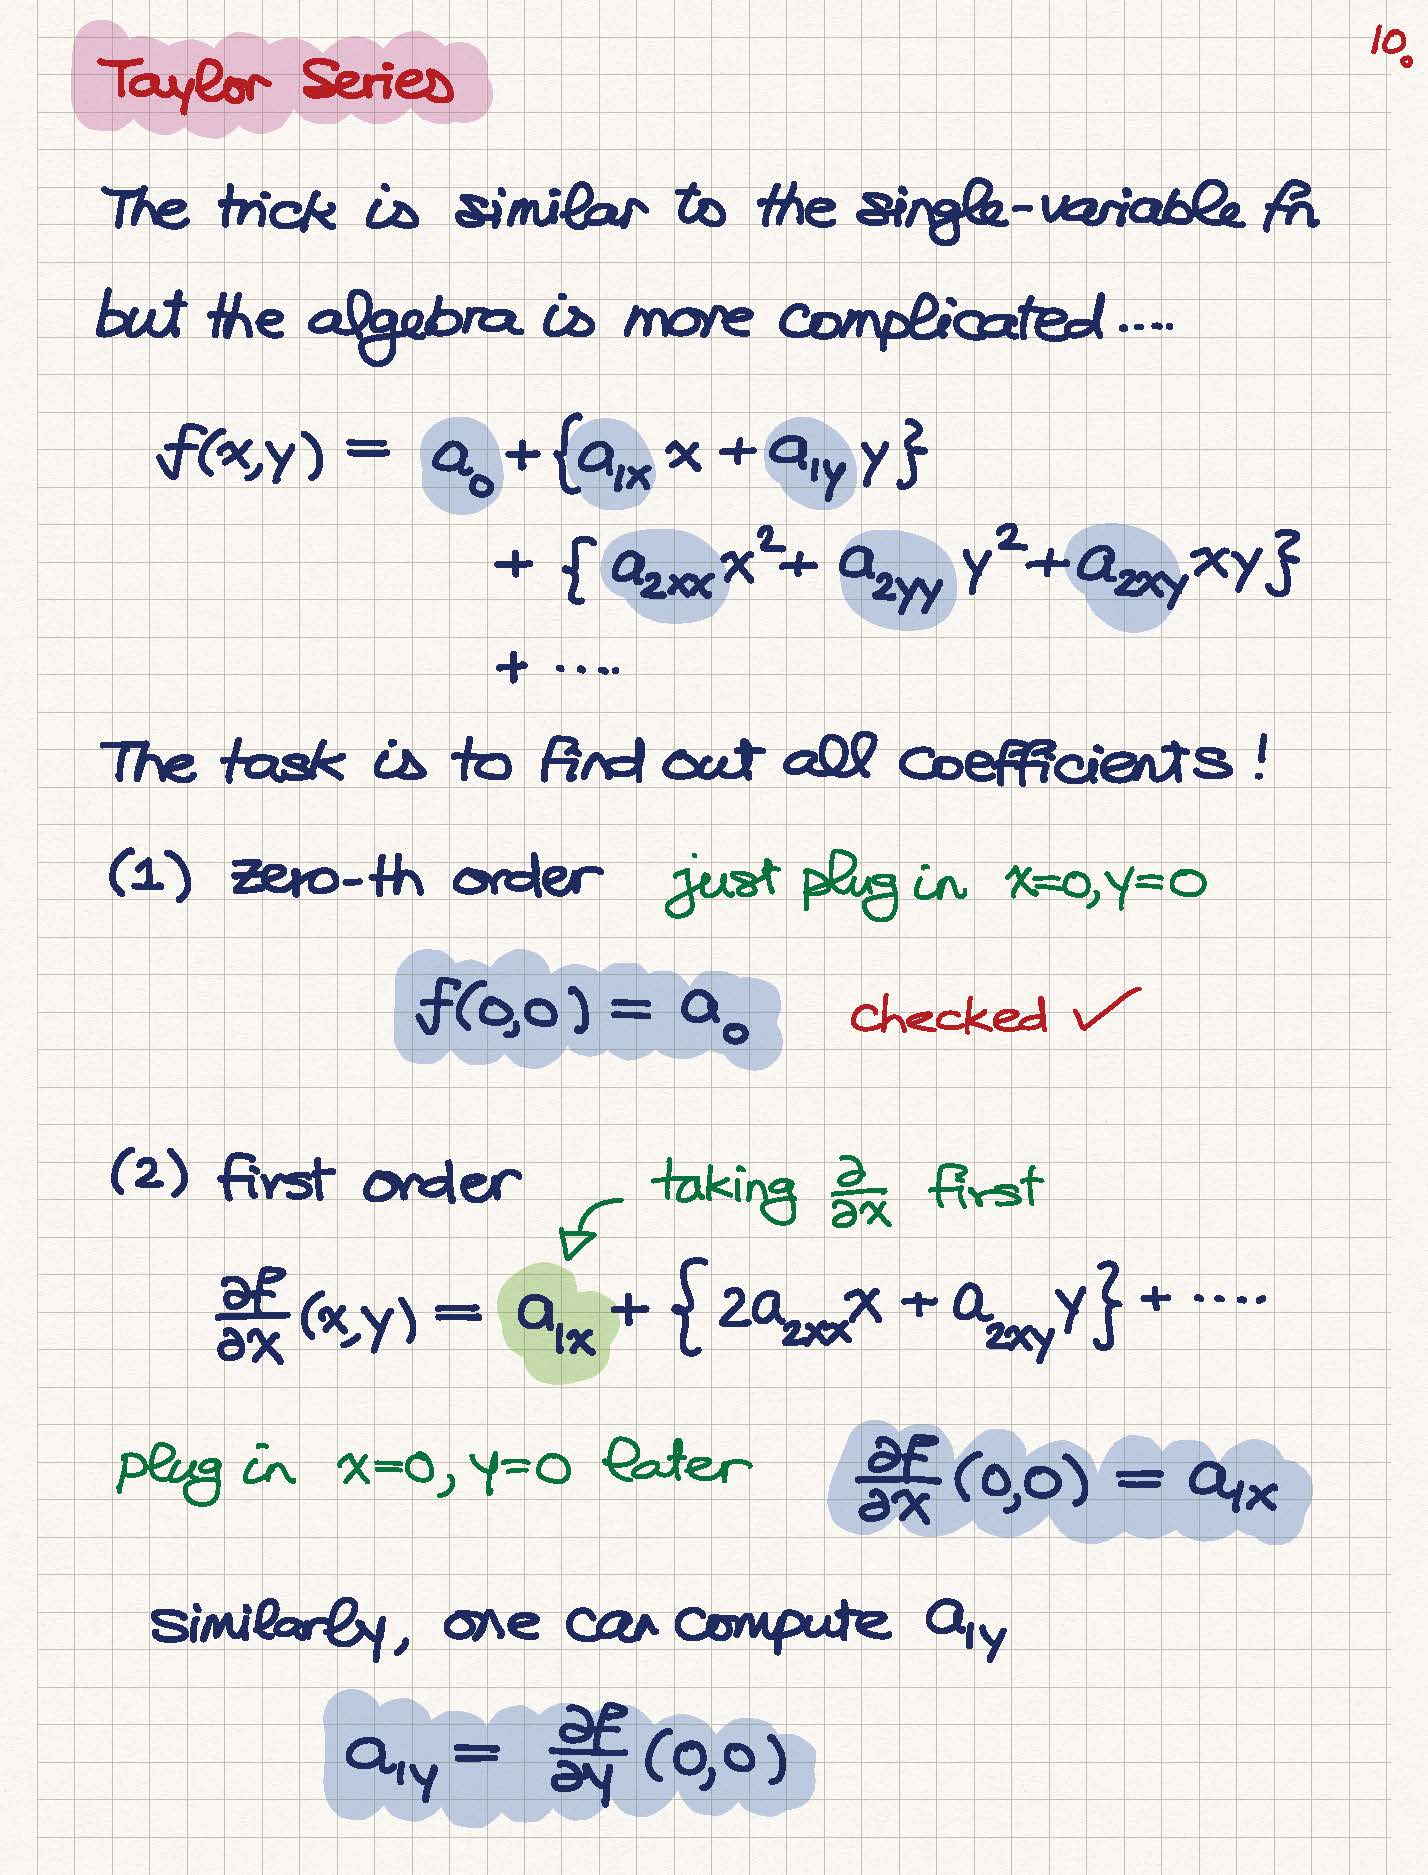 10.
Taylor Series
The trick is similar to the single-variable fn
but the algebra is more complicated .....
f(x,y) = a₀ + {a₁ₓ x + a_{1y} y}
+ {a_{2xx} x² + a_{2yy} y² + a_{2xy} xy}
+ ....
The task is to find out all coefficients !
(1) zero-th order just plug in x=0, y=0
f(0,0) = a₀ checked ✓
(2) first order taking ∂/∂x first
∂f/∂x (x,y) = a₁ₓ + {2a_{2xx} x + a_{2xy} y} + .....
plug in x=0, y=0 later ∂f/∂x (0,0) = a₁ₓ
Similarly, one can compute a_{1y}
a_{1y} = ∂f/∂y (0,0)